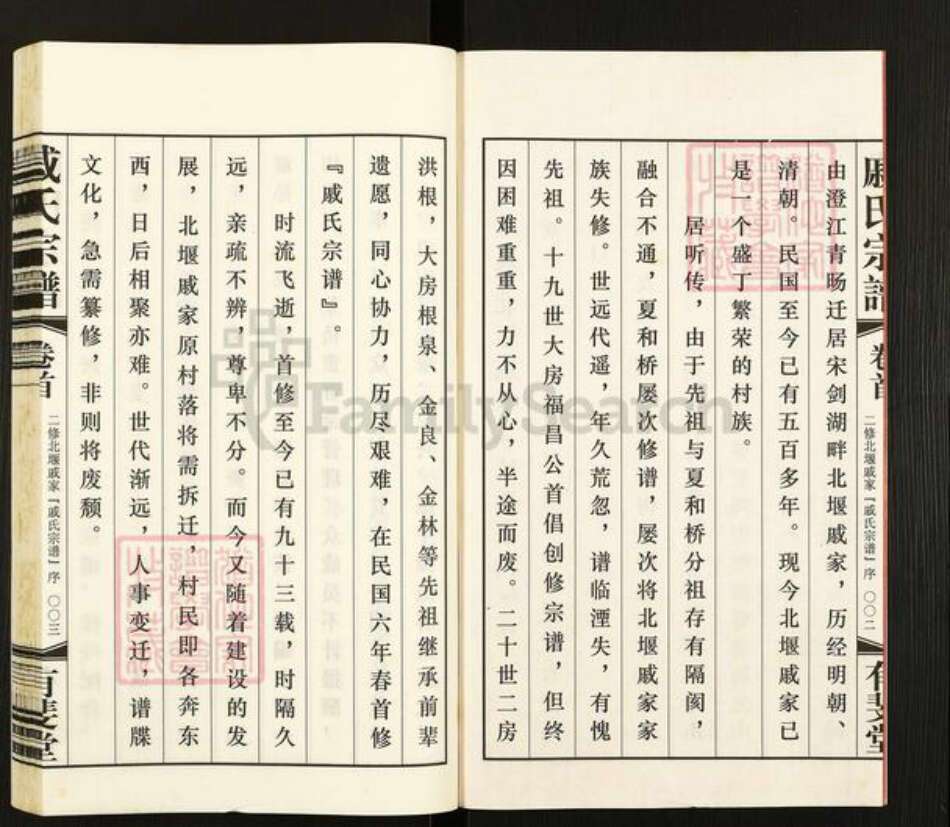 戚氏宗谱
卷首
二修北堰戚家『戚氏宗谱』序
〇〇二
有斐堂
由澄江青旸迁居宋剑湖畔北堰戚家，历经明朝、
清朝。民国至今已有五百多年。现今北堰戚家已
是一个盛丁繁荣的村族。
居听传，由于先祖与夏和桥分祖存有隔阂，
融合不通，夏和桥屡次修谱，屡次将北堰戚家家
族失修。世远代遥，年久荒忽，谱临湮失，有愧
先祖。十九世大房福昌公首倡创修宗谱，但终
因困难重重，力不从心，半途而废。二十世二房
洪根，大房根泉、金良、金林等先祖继承前辈
遗愿，同心协力，历尽艰难，在民国六年春首修
『戚氏宗谱』。
时流飞逝，首修至今已有九十三载，时隔久
远，亲疏不辨，尊卑不分。而今又随着建设的发
展，北堰戚家原村落将需拆迁，村民即各奔东
西，日后相聚亦难。世代渐远，人事变迁，谱牒
文化，急需纂修，非则将废颓。
戚氏宗谱
卷首
二修北堰戚家『戚氏宗谱』序
〇〇三
有斐堂
FamilySearch